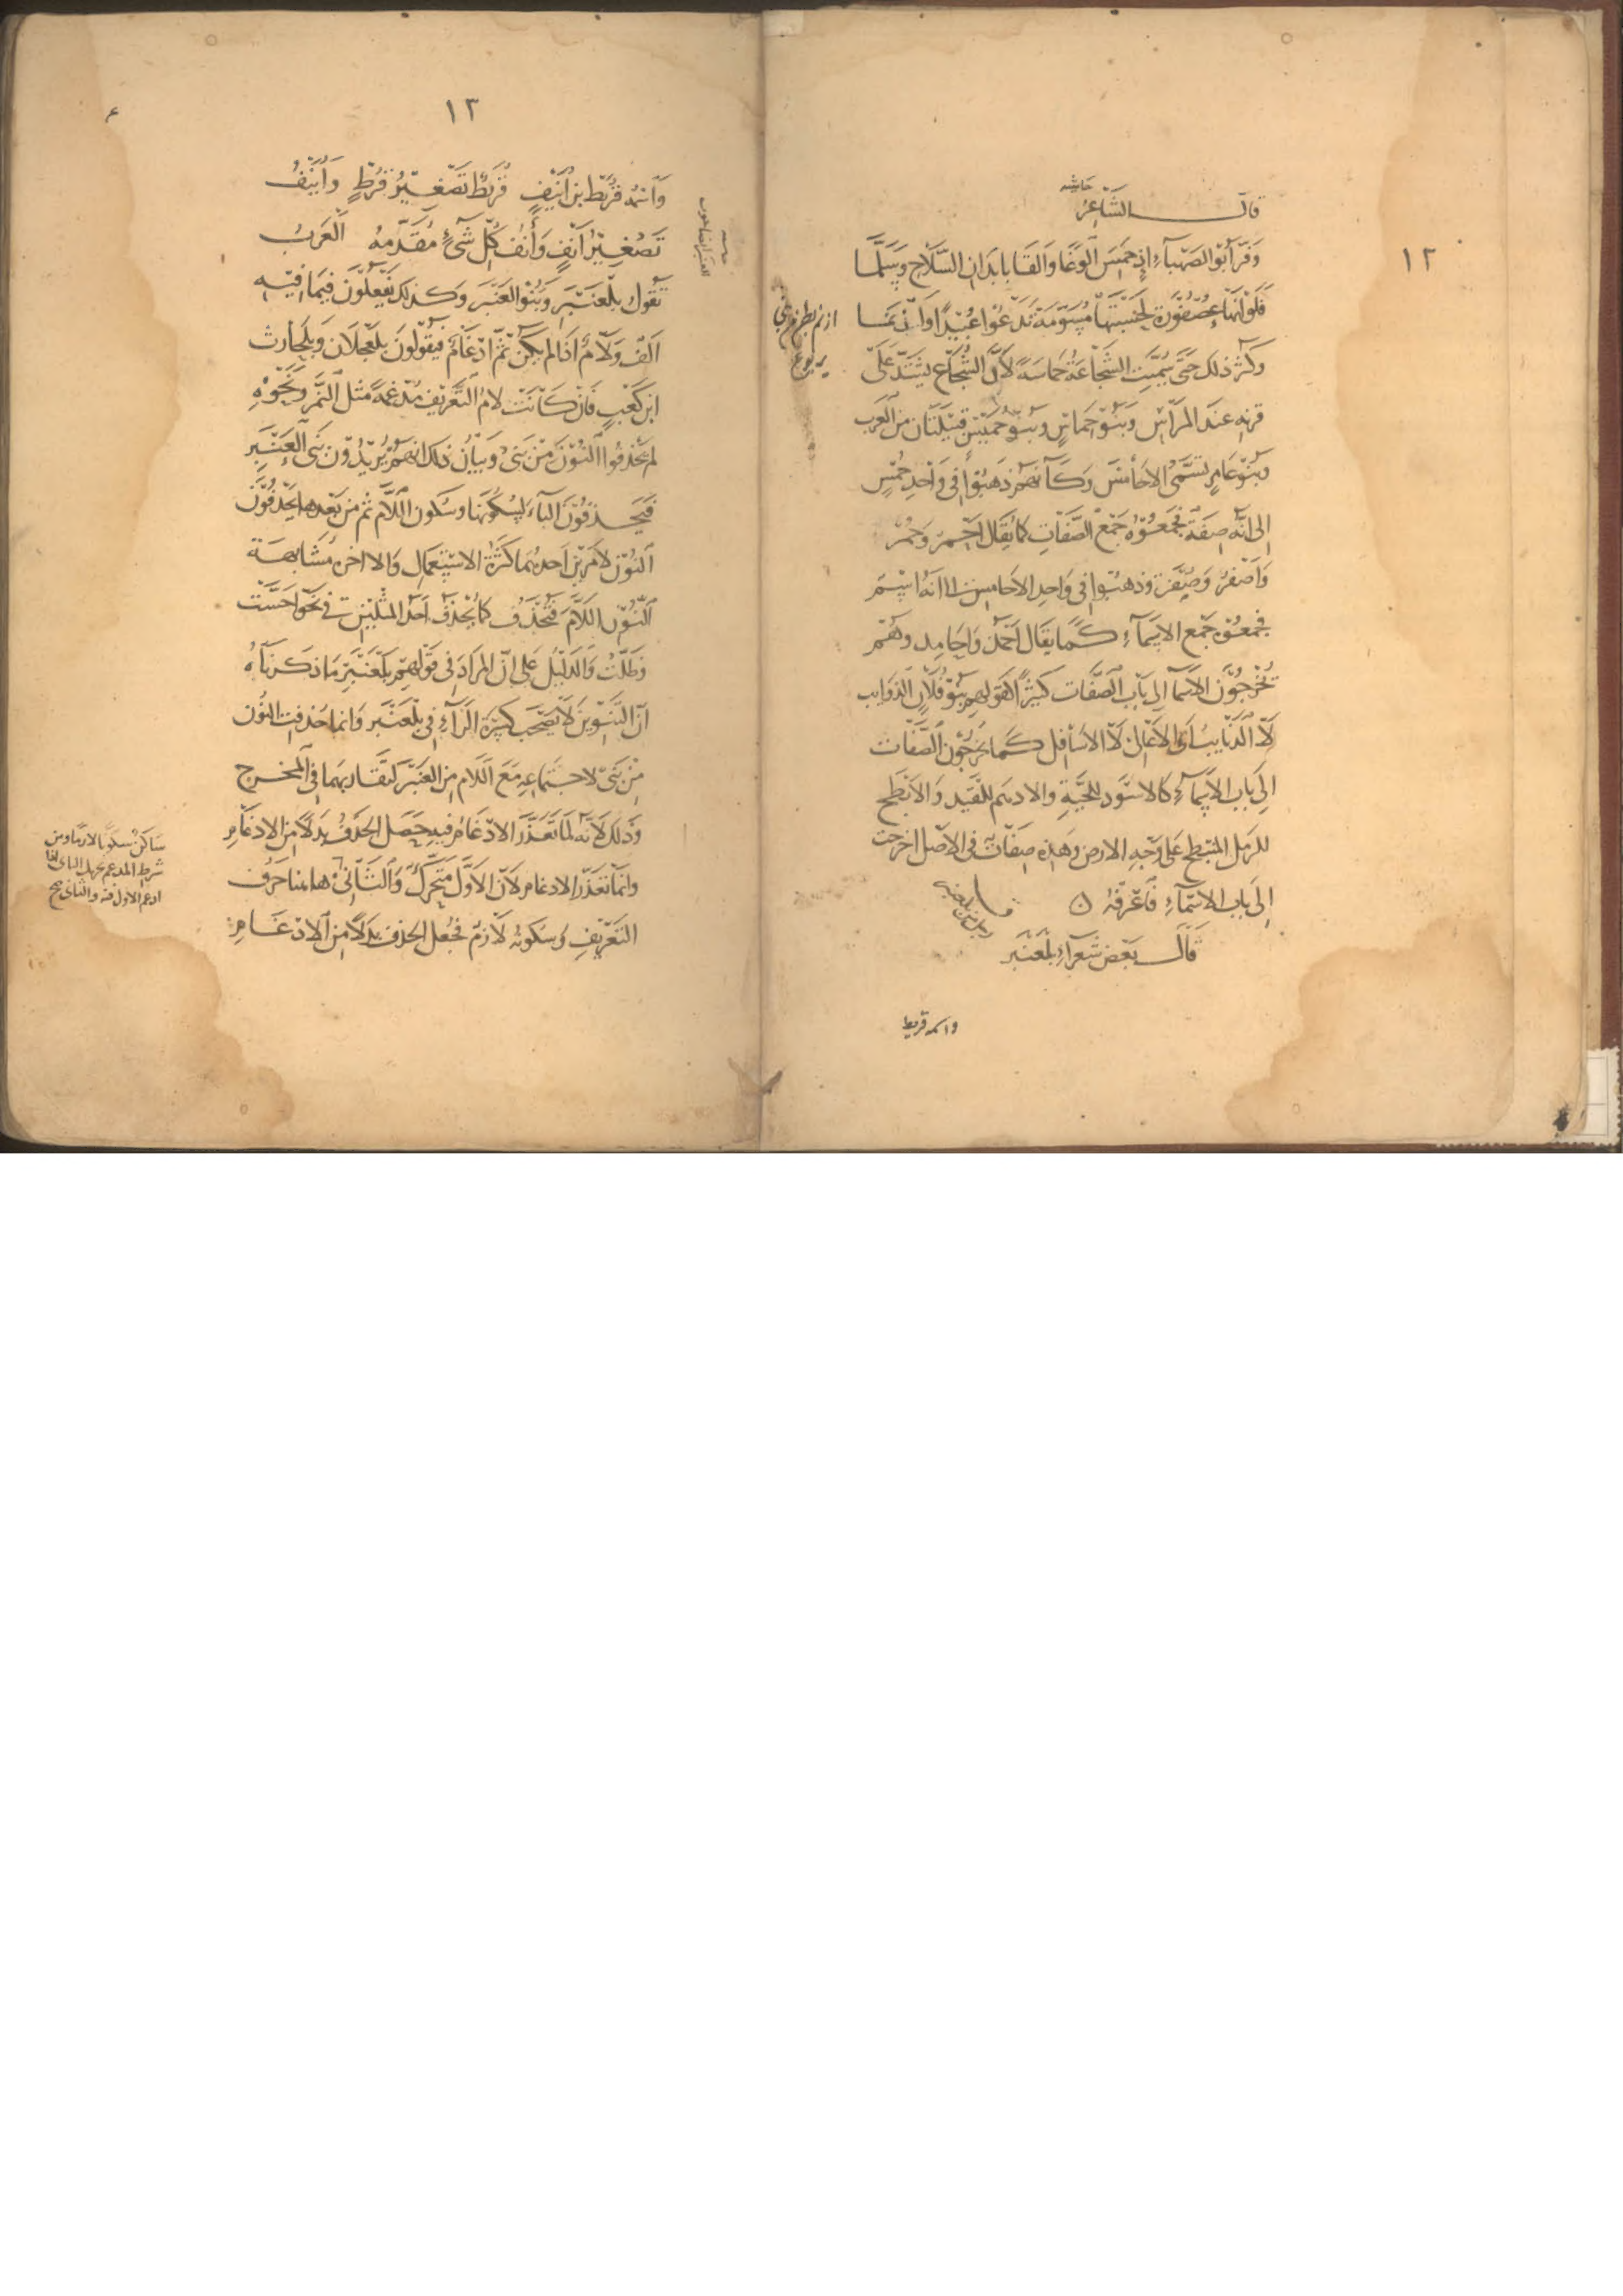 ١٢
حاشية
قال الشاعر
وَفَرَّ أَبُو الصَّهْبَاءِ إِذْ حَمِسَ الوَغَا وَالقَا بِابدَانِ السِّلَاحِ وَسَلَّمَا
فَلَوْ أَنَّهَا عُصْفُورَة لَحَسِبْتَهَا مُسَوَّمَة تَدْعُوا عُبَيْدًا وَازْنَمَا
ازنم بطن من بني
يربوع
وكثر ذلك حَتَّى سُمِّيَت الشَّجَاعَةُ حَمَاسَةً لأَنَّ الشُّجَاع يَشْتَدُّ عَلَى
قرنه عند المِرَاسِ وَبَنُو حِمَاسٍ وَبَنُو حُمَيْسٍ قَبِيلَتَان مِنَ العَرَب
وبنو عَامِرٍ تُسَمَّى الاحَامِسَ وَكَأَنهم ذَهَبُوا فِي وَاحِدِ حُمْسٍ
إلى انَّه صِفَة فَجَمَعُوهُ جَمْعَ الصِّفَاتِ كَمَا يُقَال احْمَر وَحُمْر
وَاصْفَرُ وَصُفْر وذهبوا في وَاحِدِ الاحَامِسِ الا انَّهُ اسْم
فجمعُوه جَمْع الاسْمَاءِ كَمَا يُقَال احْمَد وَاحَامِد وهُم
يُخْرِجُونَ الاسْمَا الى بَاب الصِّفَات كَثِيرًا كَقَولِهِم بَنُو فُلَانٍ الذَوَايب
لَا الذَّنَايب اى الاعَالى لَا الاسَافِل كَمَا يُخْرِجُون الصِّفَات
إلى بَاب الاسْمَاءِ كَالاسْوَد للحَيَّةِ والادْهَم للقَيْد وَالابْطَح
للرمل المُنبَطِح عَلَى وَجْهِ الارض وهَذِهِ صِفَات فِي الاصْلِ اخْرجَت
إلى بَاب الاسْمَاءِ فَاعْرِفْهُ
قَالَ بَعْضُ شُعَرَاءِ بَلْعَنْبَر
واسمه قريط
١٣
وَاسْمُهُ قُرَيْط بن اُنَيْفٍ قُرَيْطٌ تَصْغِيرُ قُرْطٍ وَاُنَيْفُ
تَصْغِيْرُ اَنْفٍ وَأَنْفُ كُلِّ شَيْءٍ مُقَدَّمُهُ العَرَبُ
تَقُولُ بَلْعَنْبَرِ وَبَنُو العَنْبَرِ وَكَذلك يَفْعَلُونَ فِيمَا فِيهِ
الفٌ وَلَامٌ اذَا لم يَكُنْ ثَمَّ ادْغَامٌ فَيَقُولُونَ بَلْعَجْلَان وَبَلْحَارث
ابن كَعْبٍ فَانْ كَانَت لامُ التَّعْرِيْف مُدْغَمَةً مثل النَّمِر وَنَحْوِهِ
لم يَحْذِفُوا النُّونَ مِنْ بَنى وَبَيَانُ ذلك انهم يُرِيدُونَ بَنى العَنْبَرِ
فَيَحْذِفُونَ الياءَ لِسُكُونِهَا وسُكُون اللَّام ثُم مِنْ بَعْدِها يَحْذِفُونَ
النُّوْنَ لامْرَيْنِ احَدهُمَا كَثْرَةُ الاسْتِعْمَالِ وَالاخرِ مُشَابَهَة
النُّون اللَّامَ فَتُحْذَف كما يُحْذَف احَد المثْلَيْنِ في نَحْوِ احَسْت
وَظَلْتُ وَالدَّلِيْل عَلى انّ المرادَ في قَوْلِهِمْ بَلْعَنْبَرِ مَا ذَكَرْنَاهُ
انّ التَّنْوِينَ لَا يَصْحَب كَسْرَة الرَّاءِ في بَلْعَنْبَرِ وَانما حُذفت النُّون
مِنْ بَنى لاجْتِمَاعِهِ مَعَ اللام من العَنْبَر لِتَقَاربهمَا في المخرج
وَذَلك لأَنَّه لَمَّا تَعَذَّر الادْغَامُ فِيهِ حَصَل الحَذْفُ بَدَلًا من الادغَامِ
وانمَا تَعَذَّر الادغام لأنّ الاوّل مُتَحَرِّك وَالثَّانى هاهنا حَرْف
التَّعْرِيفِ وَسُكونُه لَازِمٌ فجُعل الحذف بَدَلًا من الادغَامِ
ساكن سكونا لازما ومن
شرط المدغم تحريك الثاني اذا
ادغم الاول فيه والثاني صح